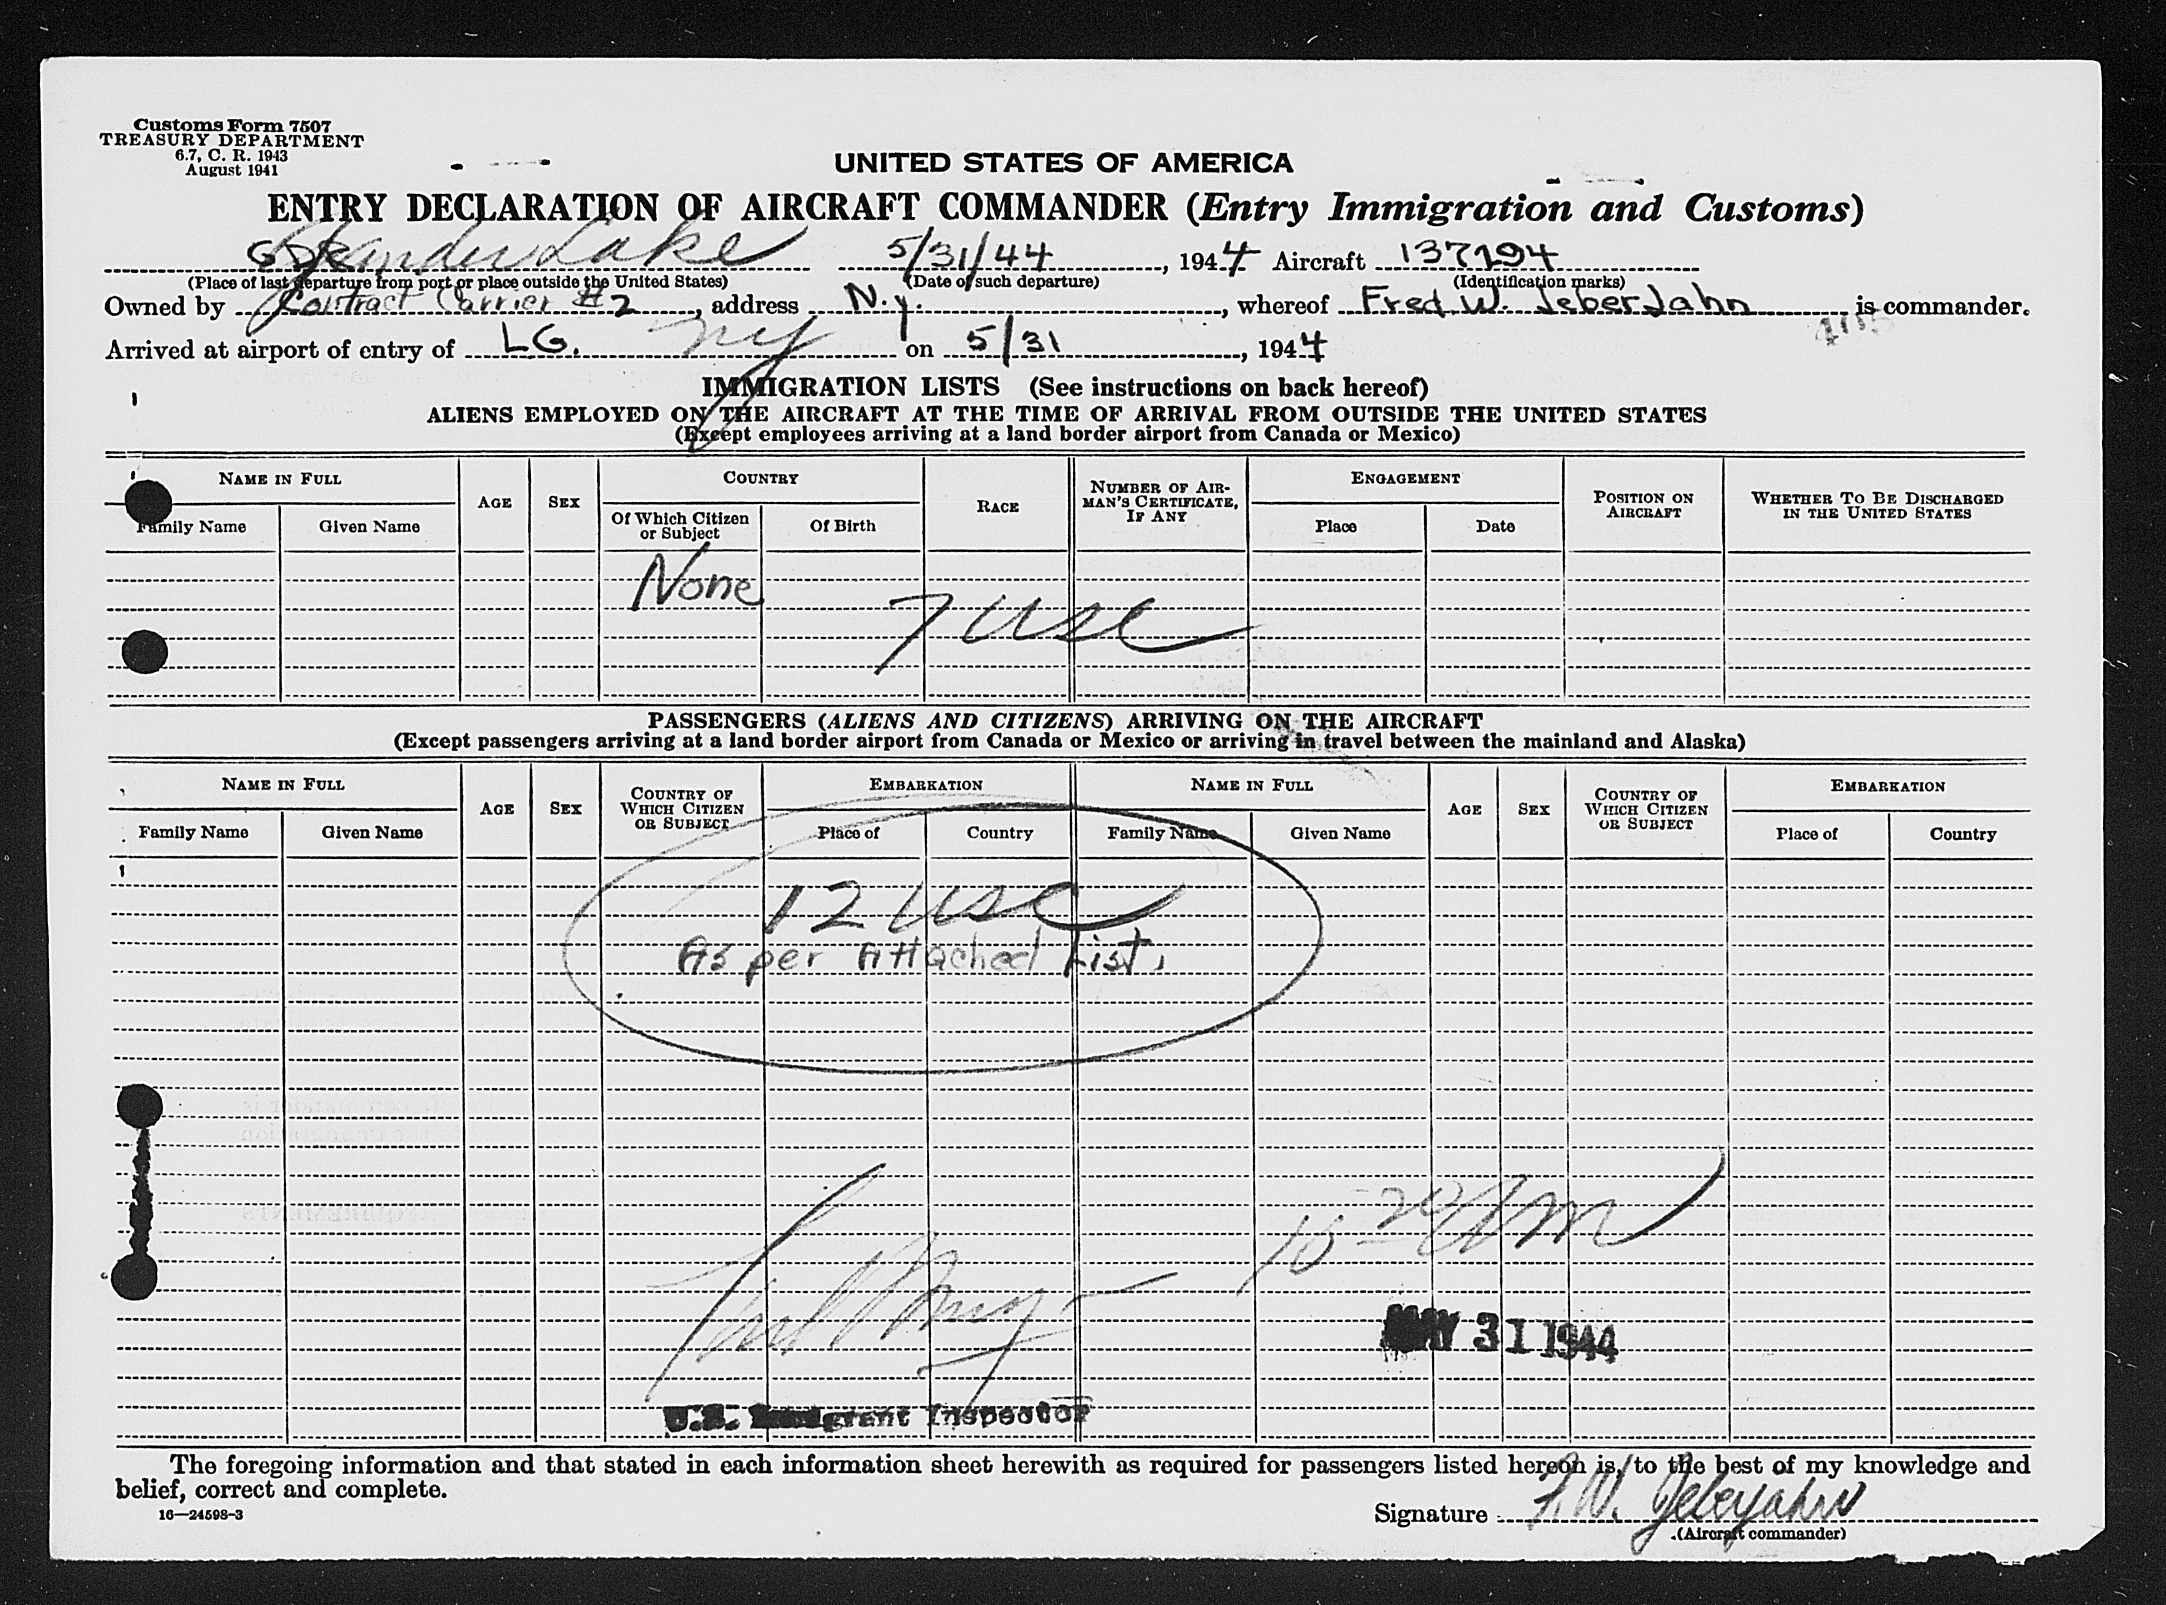 Customs Form 7507
TREASURY DEPARTMENT
6.7, C. R. 1943
August 1941
UNITED STATES OF AMERICA
ENTRY DECLARATION OF AIRCRAFT COMMANDER (Entry Immigration and Customs)
Gander Lake 5/31/44, 1944 Aircraft 137194
(Place of last departure from port or place outside the United States) (Date of such departure) (Identification marks)
Owned by Contract Carrier #2, address N.y., whereof Fred. W. JeberJahn is commander.
Arrived at airport of entry of LG. ny on 5/31, 1944
IMMIGRATION LISTS (See instructions on back hereof)
ALIENS EMPLOYED ON THE AIRCRAFT AT THE TIME OF ARRIVAL FROM OUTSIDE THE UNITED STATES
(Except employees arriving at a land border airport from Canada or Mexico)
NAME IN FULL AGE SEX COUNTRY RACE NUMBER OF AIRMAN'S CERTIFICATE, IF ANY ENGAGEMENT POSITION ON AIRCRAFT WHETHER TO BE DISCHARGED IN THE UNITED STATES
Family Name Given Name Of Which Citizen or Subject Of Birth Place Date
None
7 USC
PASSENGERS (ALIENS AND CITIZENS) ARRIVING ON THE AIRCRAFT
(Except passengers arriving at a land border airport from Canada or Mexico or arriving in travel between the mainland and Alaska)
NAME IN FULL AGE SEX COUNTRY OF WHICH CITIZEN OR SUBJECT EMBARKATION NAME IN FULL AGE SEX COUNTRY OF WHICH CITIZEN OR SUBJECT EMBARKATION
Family Name Given Name Place of Country Family Name Given Name Place of Country
12 USC
As per Attached List.
10 20 AM
MAY 31 1944
U.S. Immigrant Inspector
The foregoing information and that stated in each information sheet herewith as required for passengers listed hereon is, to the best of my knowledge and
belief, correct and complete.
16—24598-3
Signature F. W. Jeberjahn
(Aircraft commander)